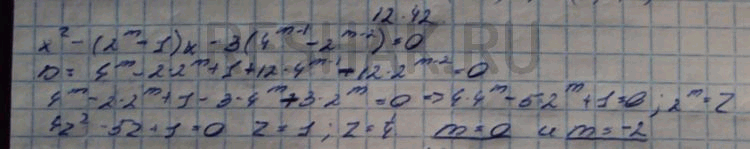 12.42
x² - (2^m - 1)x - 3(4^(m-1) - 2^(m-2)) = 0
D = 4^m - 2·2^m + 1 + 12·4^(m-1) - 12·2^(m-2) = 0
4^m - 2·2^m + 1 - 3·4^m + 3·2^m = 0 => 4·4^m - 5·2^m + 1 = 0; 2^m = z
4z² - 5z + 1 = 0 z = 1; z = ¼ m = 0 и m = -2
RESHAK.RU